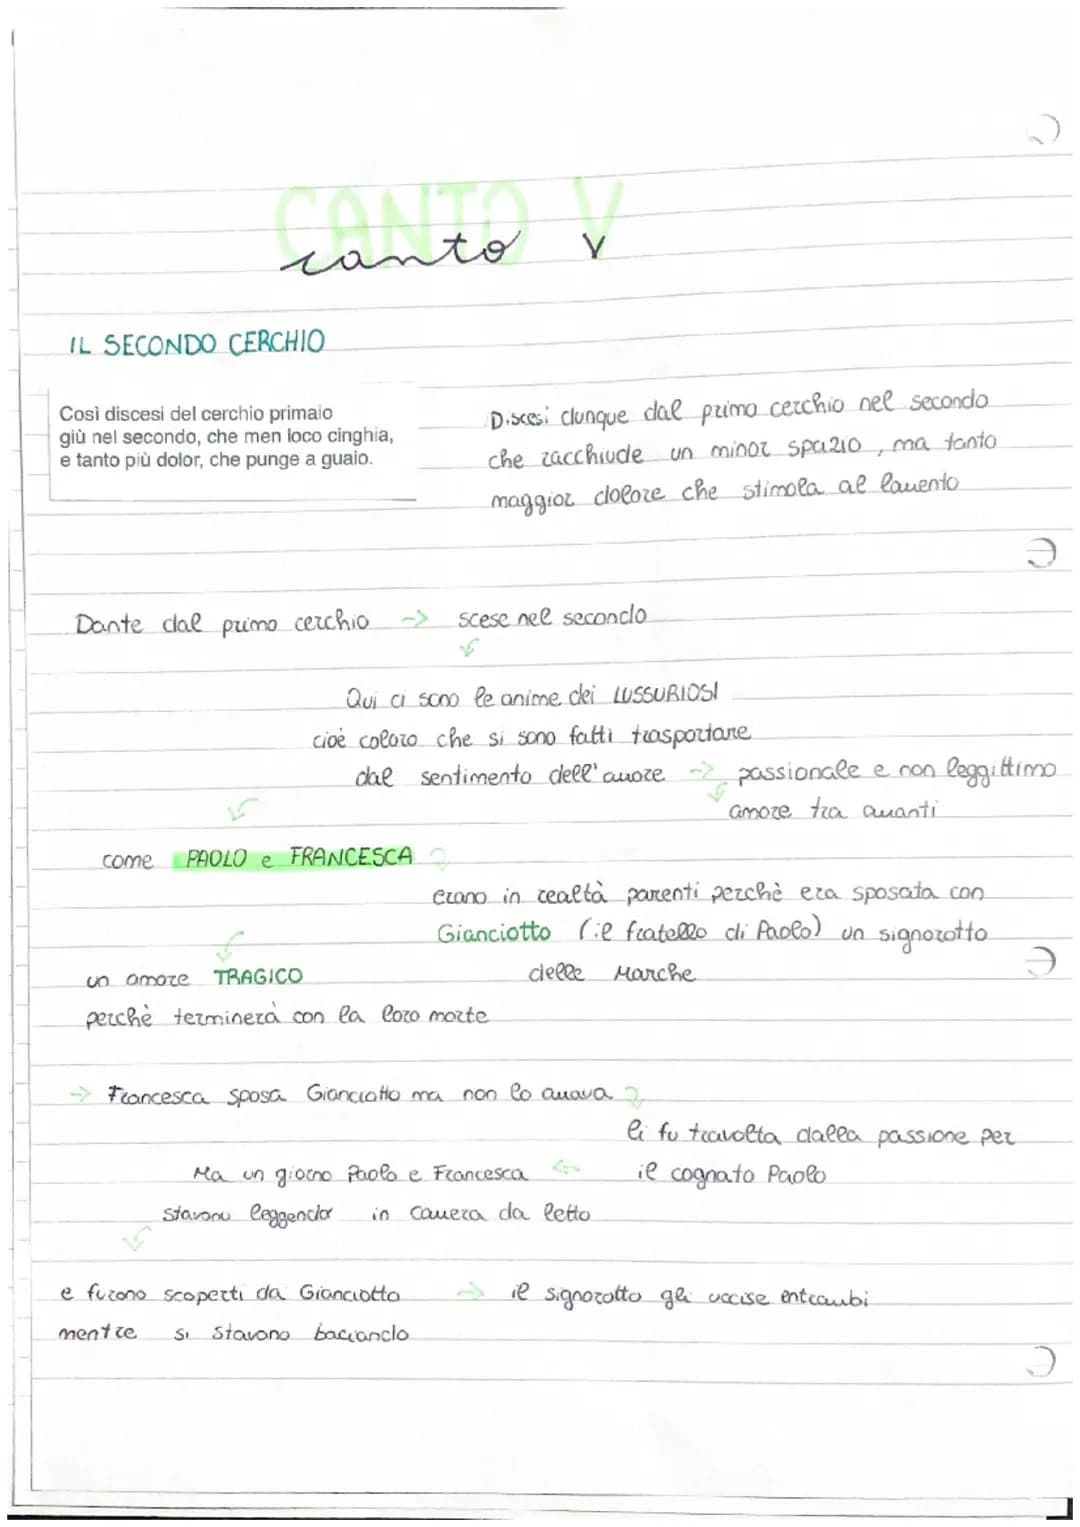 CANTO V
canto V
IL SECONDO CERCHIO
Così discesi del cerchio primaio
giù nel secondo, che men loco cinghia,
e tanto più dolor, che punge a guaio.
Discesi dunque dal primo cerchio nel secondo
che racchiude un minor spazio, ma tanto
maggior dolore che stimola al lamento
Dante dal primo cerchio -> scese nel secondo
Qui ci sono le anime dei LUSSURIOSI
cioè coloro che si sono fatti trasportare
dal sentimento dell'amore -> passionale e non leggittimo
amore tra amanti
come PAOLO e FRANCESCA
erano in realtà parenti perchè era sposata con
Gianciotto (il fratello di Paolo) un signorotto
delle Marche
un amore TRAGICO
perchè terminerà con la loro morte
-> Francesca sposa Gianciotto ma non lo amava
li fu travolta dalla passione per
il cognato Paolo
Ma un giorno Paolo e Francesca
stavano leggendo in camera da letto
e furono scoperti da Gianciotto -> il signorotto gli uccise entrambi
mentre si stavano baciando